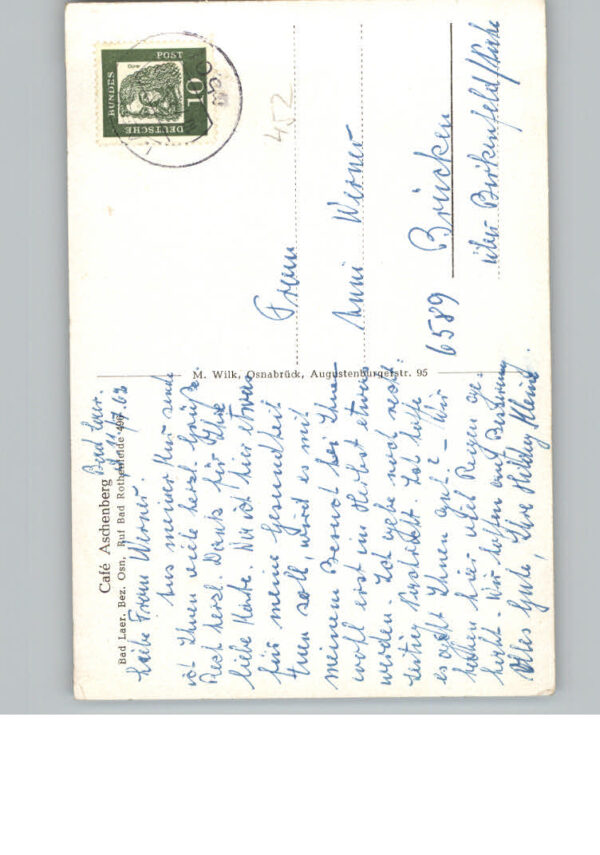 Café Aschenberg
Bad Laer, Bez. Osn., Ruf Bad Rothenfelde 496
Bad Laer.
62
Liebe Frau Werner.
Aus meiner Kur sende
ich Ihnen viele herzl. Grüße.
Recht herzl. Dank für Ihre
liebe Karte. Da ich hier etwas
für meine Gesundheit
tuen soll, wird es mit
meinem Besuch bei Ihnen
wohl erst im Herbst etwas
werden. Ich gebe noch recht-
zeitig Nachricht. Ich hoffe
es geht Ihnen gut? – Wir
hatten hier viel Regen
Wir hoffen auf Besserung
Alles Gute, Ihre Hildeg.
M. Wilk, Osnabrück, Augustenburgerstr. 95
DEUTSCHE
BUNDES
POST
Dürer
10
452
Frau
Anni Werner
6589 Brücken
über Birkenfeld/Nahe